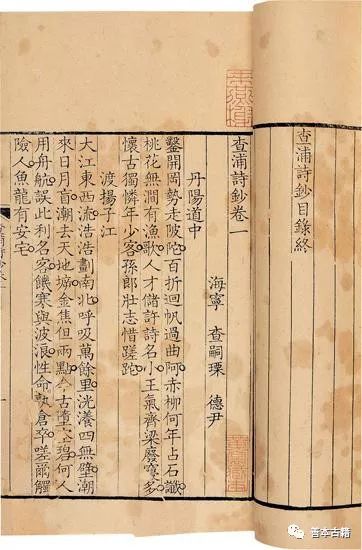 查浦詩鈔目錄終
查浦詩鈔卷一
海寧 查嗣瑮 德尹
丹陽道中
鑿開岡勢走陂陀百折迴帆過曲阿赤柳何年占石讖
桃花無澗有漁歌人才儲許詩名小王氣齊梁廢寢多
懷古獨憐年少客孫郎壯志惜蹉跎
渡揚子江
大江東西流浩浩劃南北呼吸萬餘里洸瀁四無壁潮
來日月盲潮去天地坼金焦但兩點今古墮空碧何人
用舟航誤此利名客饑寒與波浪性命孰倉卒嗟爾觸
險人魚龍有安宅
善本古籍